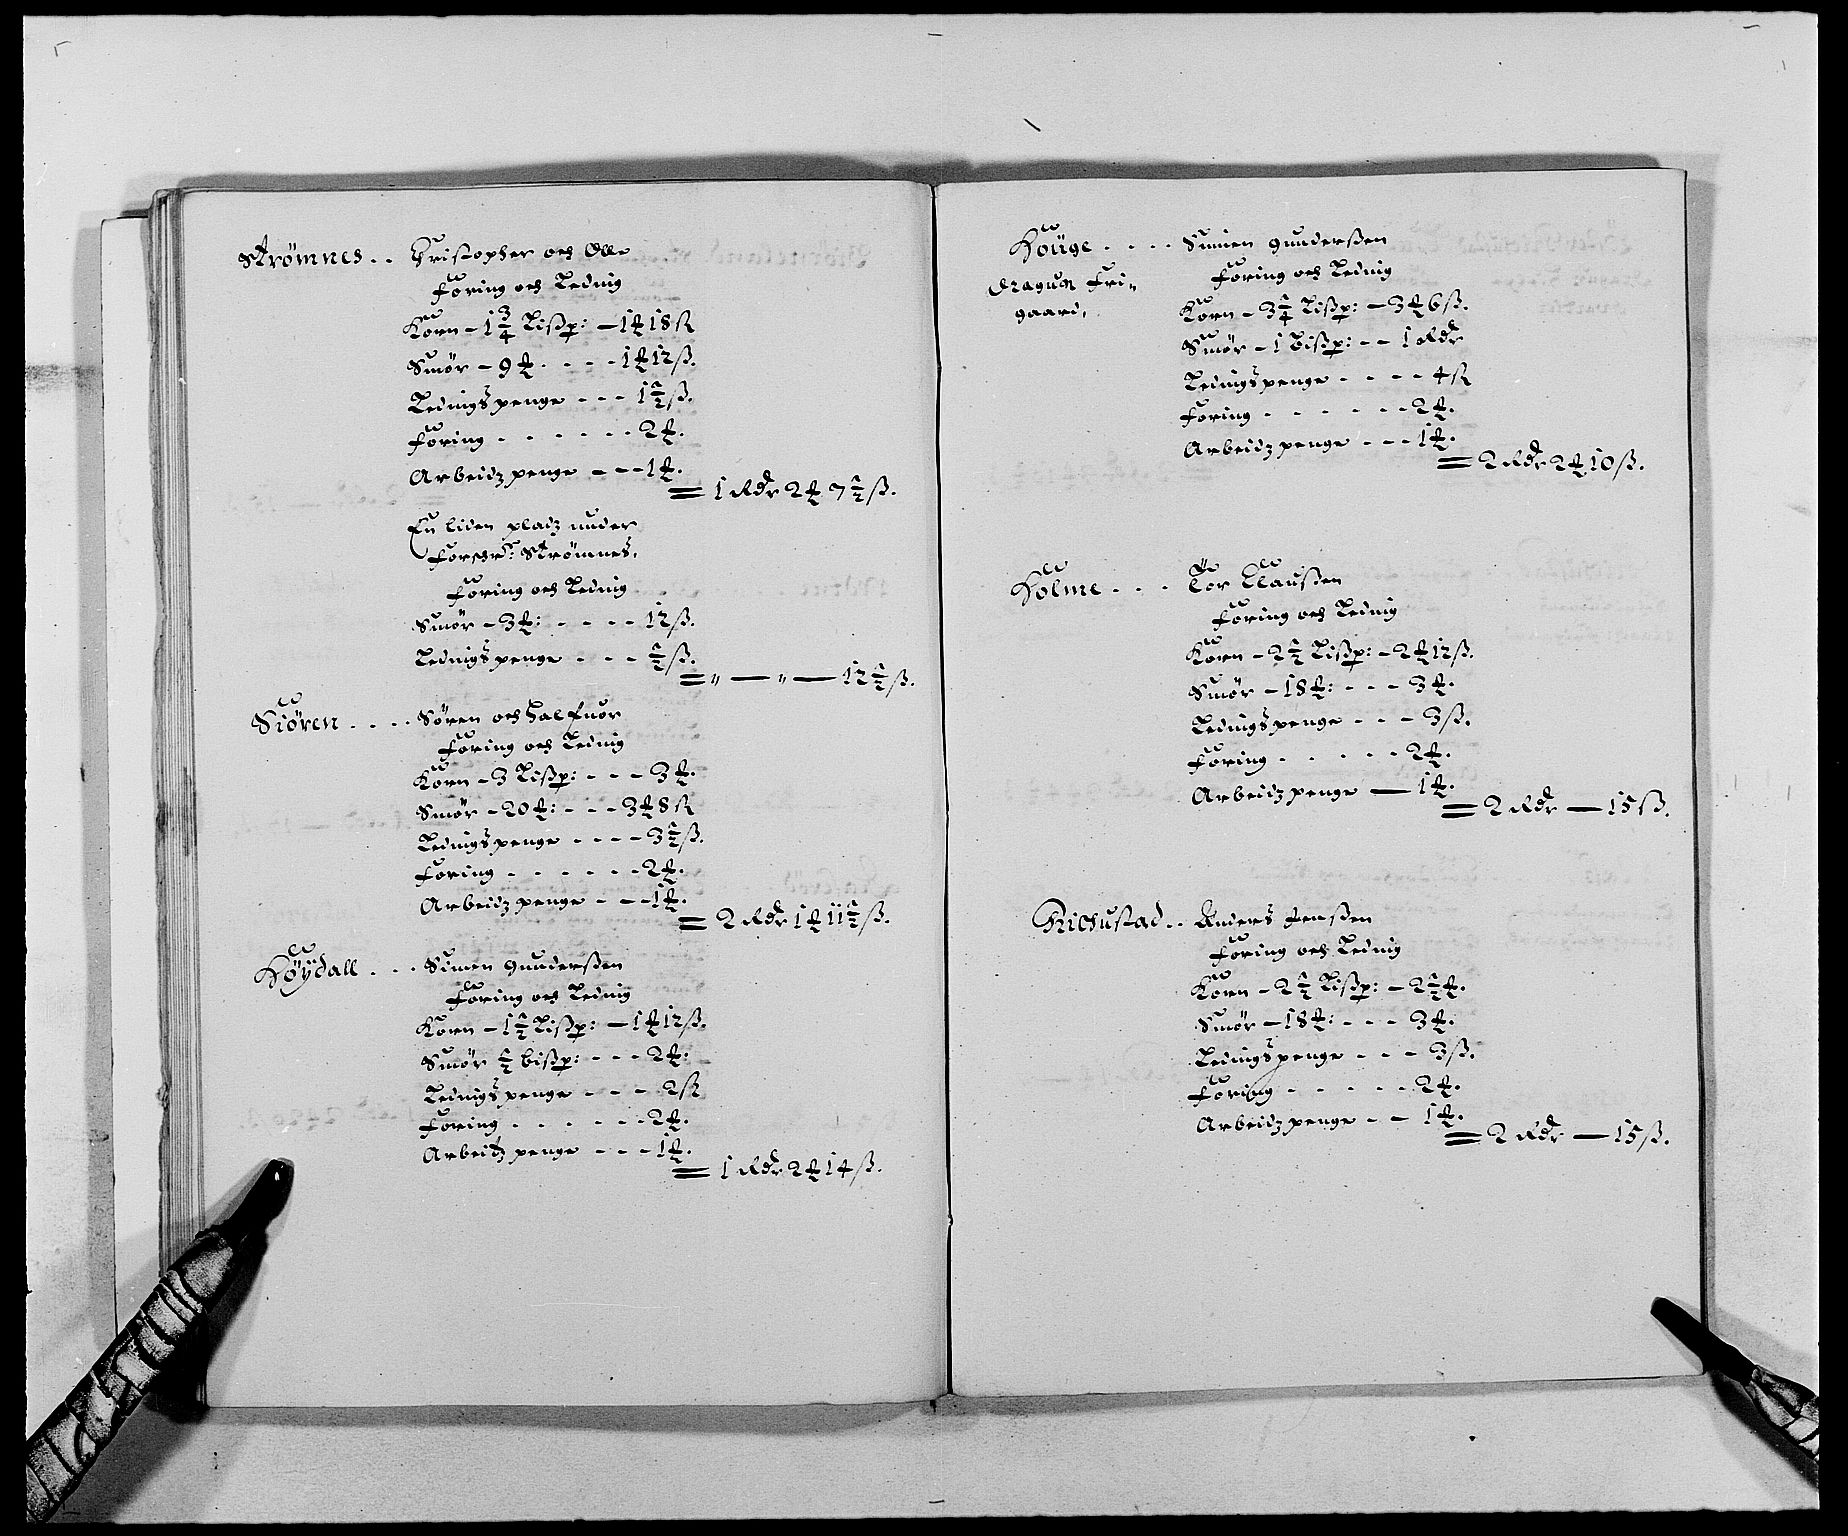 Strømnes . . Christopher och Olle
Foring och Leding
Korn - 1 3/4 Lißp: - 1 ₰ 18 ß
Smør - 9 ₰ . - - - 1 ₰ 12 ß.
Ledings penge - - - 1 1/2 ß.
Foring . - - - - - 2 ₰.
Arbeidz penge - - - 1 ₰.
= 1 Rdr 2 ₰ 7 1/2 ß.
En liden pladz under
forschr: Strømnes.
Foring och Leding
Smør - 3 ₰: - - - - 12 ß.
Ledings penge - - - 1/2 ß.
= " — " — 12 1/2 ß.
Siøren . . . . Søren och Halfuor
Foring och Leding
Korn - 3 Lißp: - - - 3 ₰.
Smør - 20 ₰: - - - 3 ₰ 8 ß
Ledings penge - - - - 3 1/2 ß.
Foring . - - - - - 2 ₰.
Arbeidz penge - - - 1 ₰.
= 2 Rdr 1 ₰ 11 1/2 ß.
Høÿdall . . . Simen Gunderßen
Foring och Leding
Korn - 1 1/2 Lißp: - 1 ₰ 12 ß.
Smør 1/2 bißp: - - - 2 ₰:
Ledings penge - - - 2 ß
Foring . . - - - - 2 ₰.
Arbeidz penge - - - 1 ₰.
= 1 Rdr 2 ₰ 14 ß.
Houge . . . . Simen Gunderßen
Dragun Fri-
gaard,
Foring och Leding
Korn - 3 1/4 Lißp: - 3 ₰ 6 ß.
Smør - 1 Bißp: - - 1 Rdr
Ledings penge - - - - 4 ß
Foring . - - - - - 2 ₰.
Arbeidz penge - - - 1 ₰.
= 2 Rdr 2 ₰ 10 ß.
Holme . . . Tor Claußen
Foring och Leding
Korn - 2 1/2 Lißp: - 2 ₰ 12 ß.
Smør - 18 ₰: - - - 3 ₰.
Ledings penge - - - 3 ß.
Foring . - - - - 2 ₰.
Arbeidz penge — 1 ₰.
= 2 Rdr — 15 ß.
Anders Jenßen
Foring och Leding
Korn - 2 1/2 Lißp: - 2 1/2 ₰.
Smør - 18 ₰: - - - 3 ₰.
Ledings penge - - - 3 ß.
Foring - - - - - 2 ₰.
Arbeidz penge - - 1 ₰.
= 2 Rdr — 15 ß.